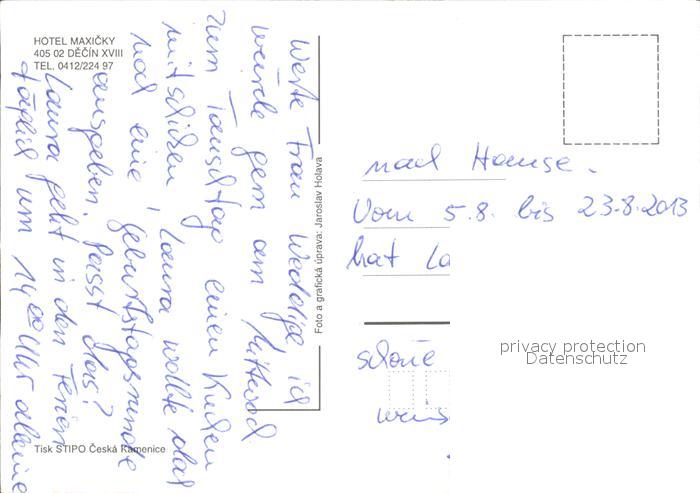 HOTEL MAXIČKY
405 02 DĚČÍN XVIII
TEL. 0412/224 97
Werte Frau Weddige, ich
würde gern am Mittwoch
zum Tanzitag einen Kuchen
mitschicken, Laura wollte
noch eine Geburtstagsrunde
ausgeben. Passt das?
Laura geht in den Ferien
täglich um 14.00 Uhr alleine
nach Hause.
Vom 5.8. bis 23.8.2013
hat La
schöne
wüns
Foto a grafická úprava: Jaroslav Holava
Tisk STIPO Česká Kamenice
privacy protection
Datenschutz